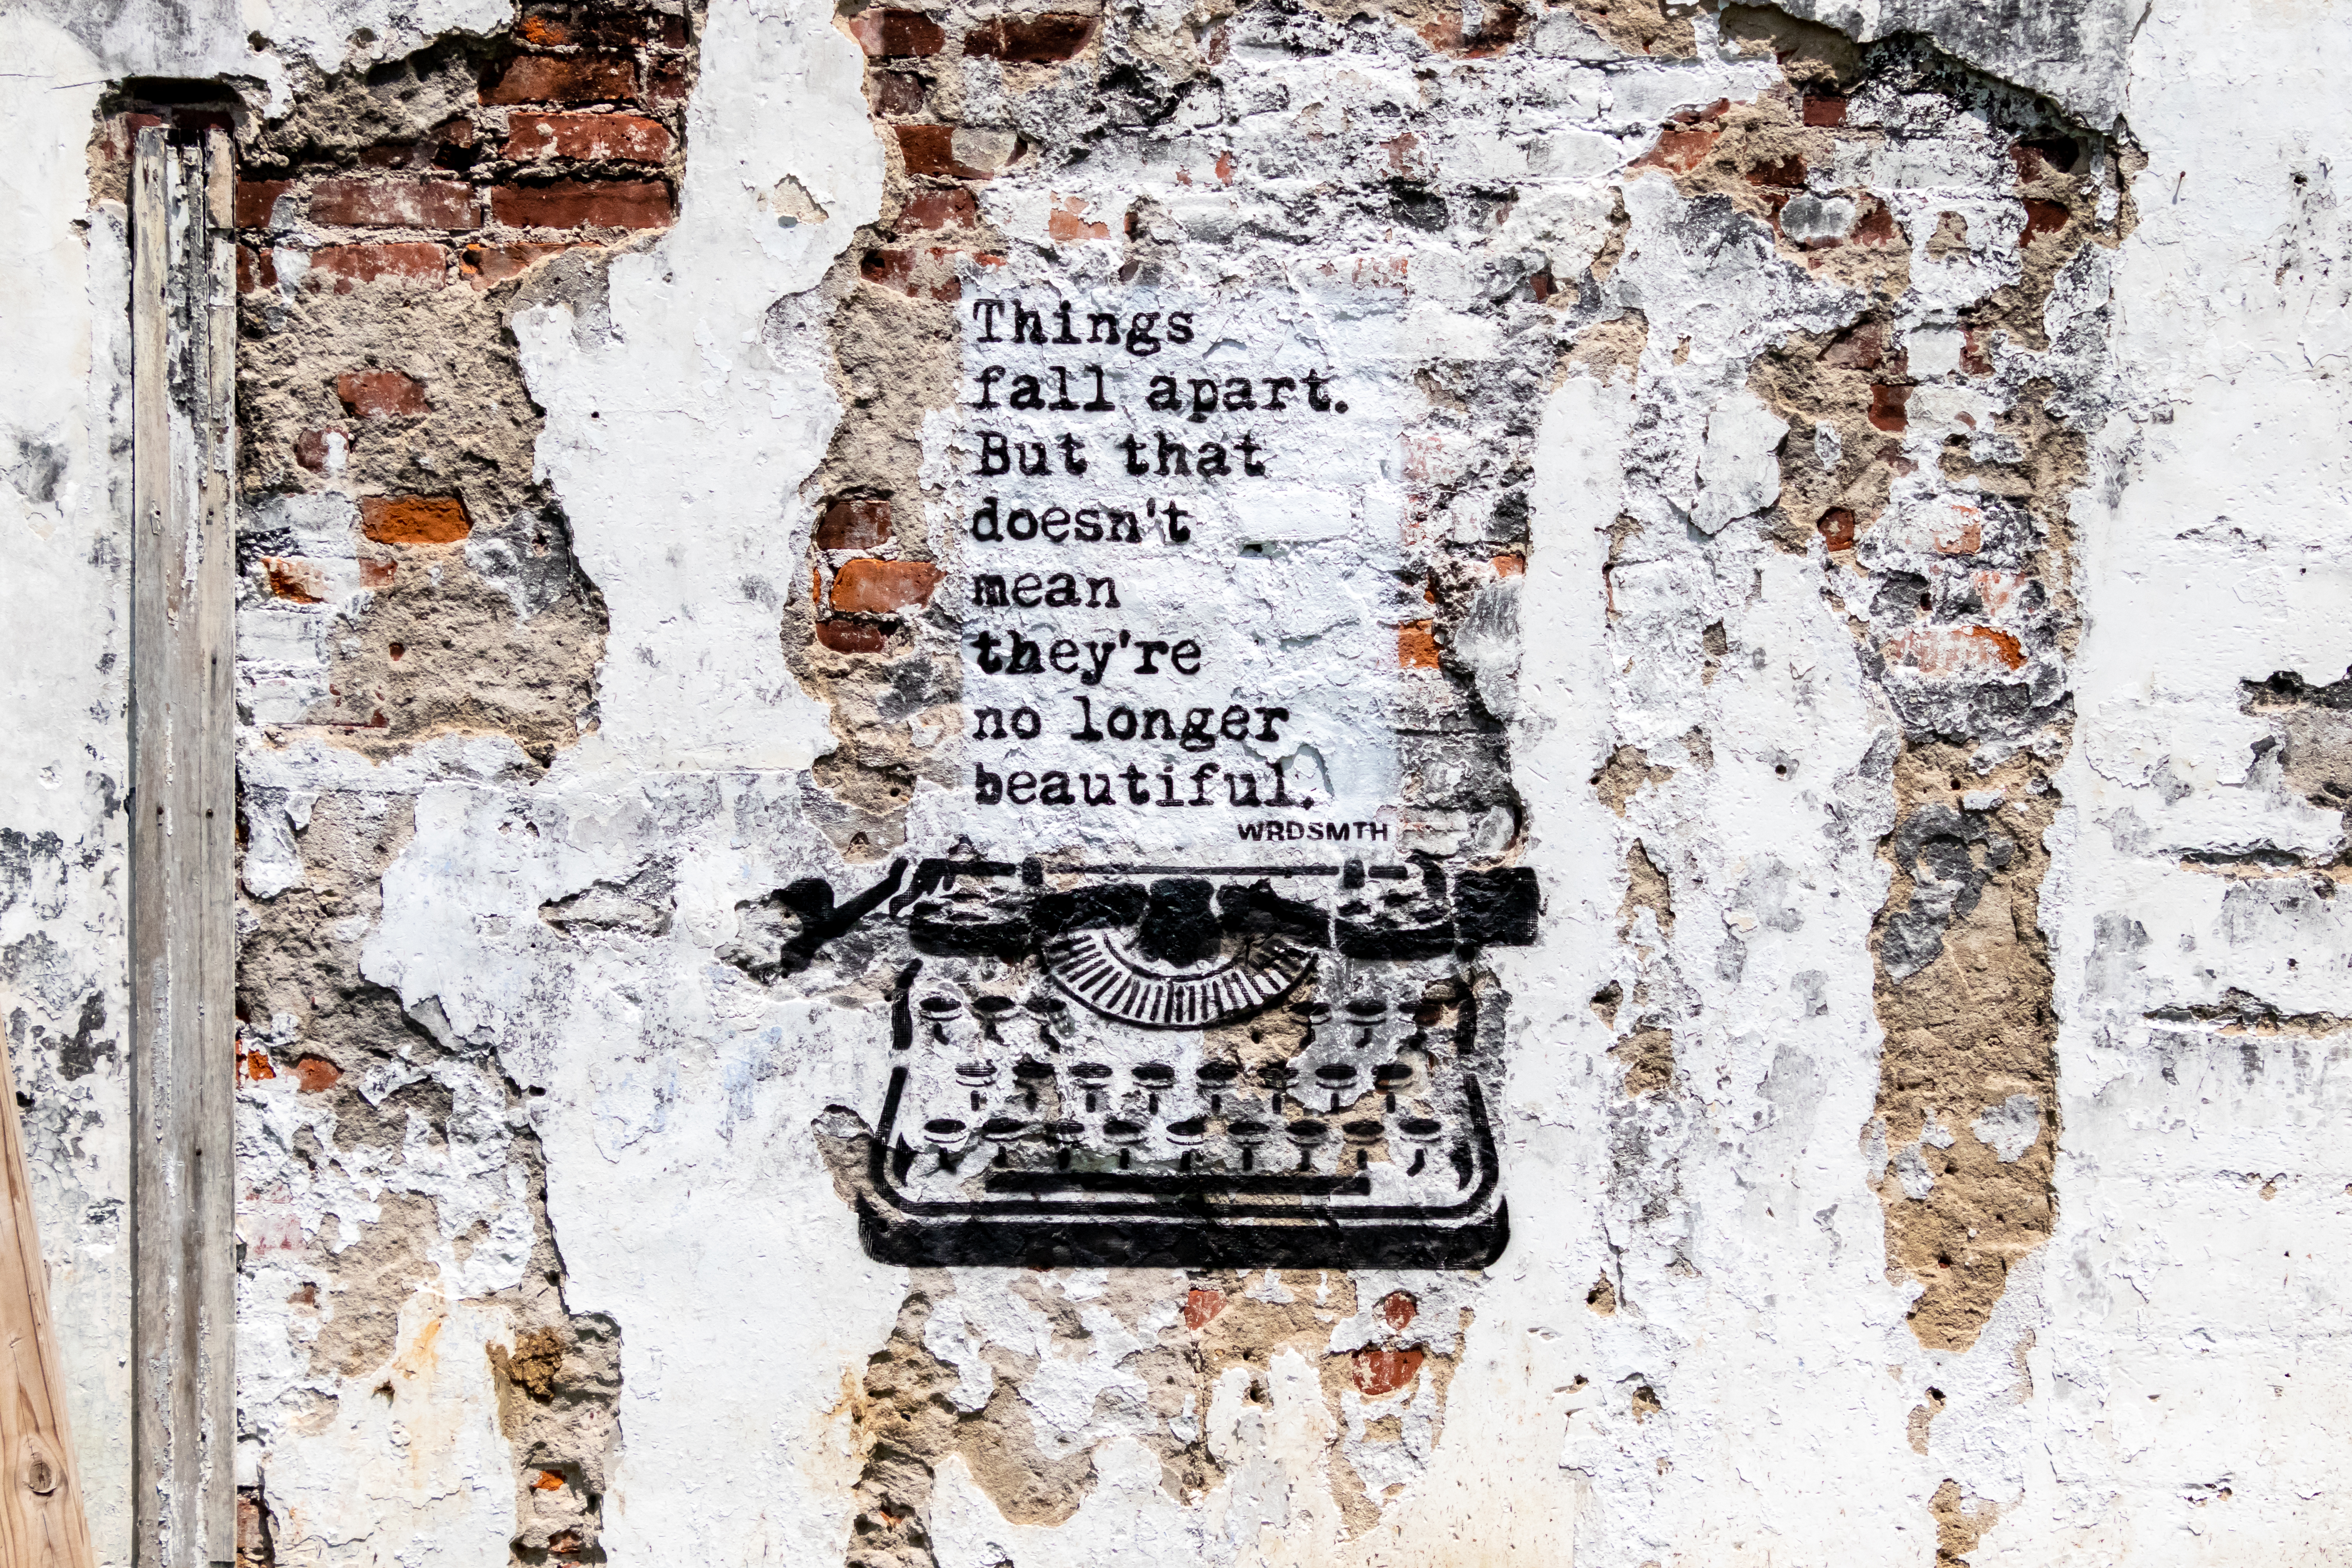 Things
fall apart.
But that
doesn't
mean
they're
no longer
beautiful.
WRDSMTH